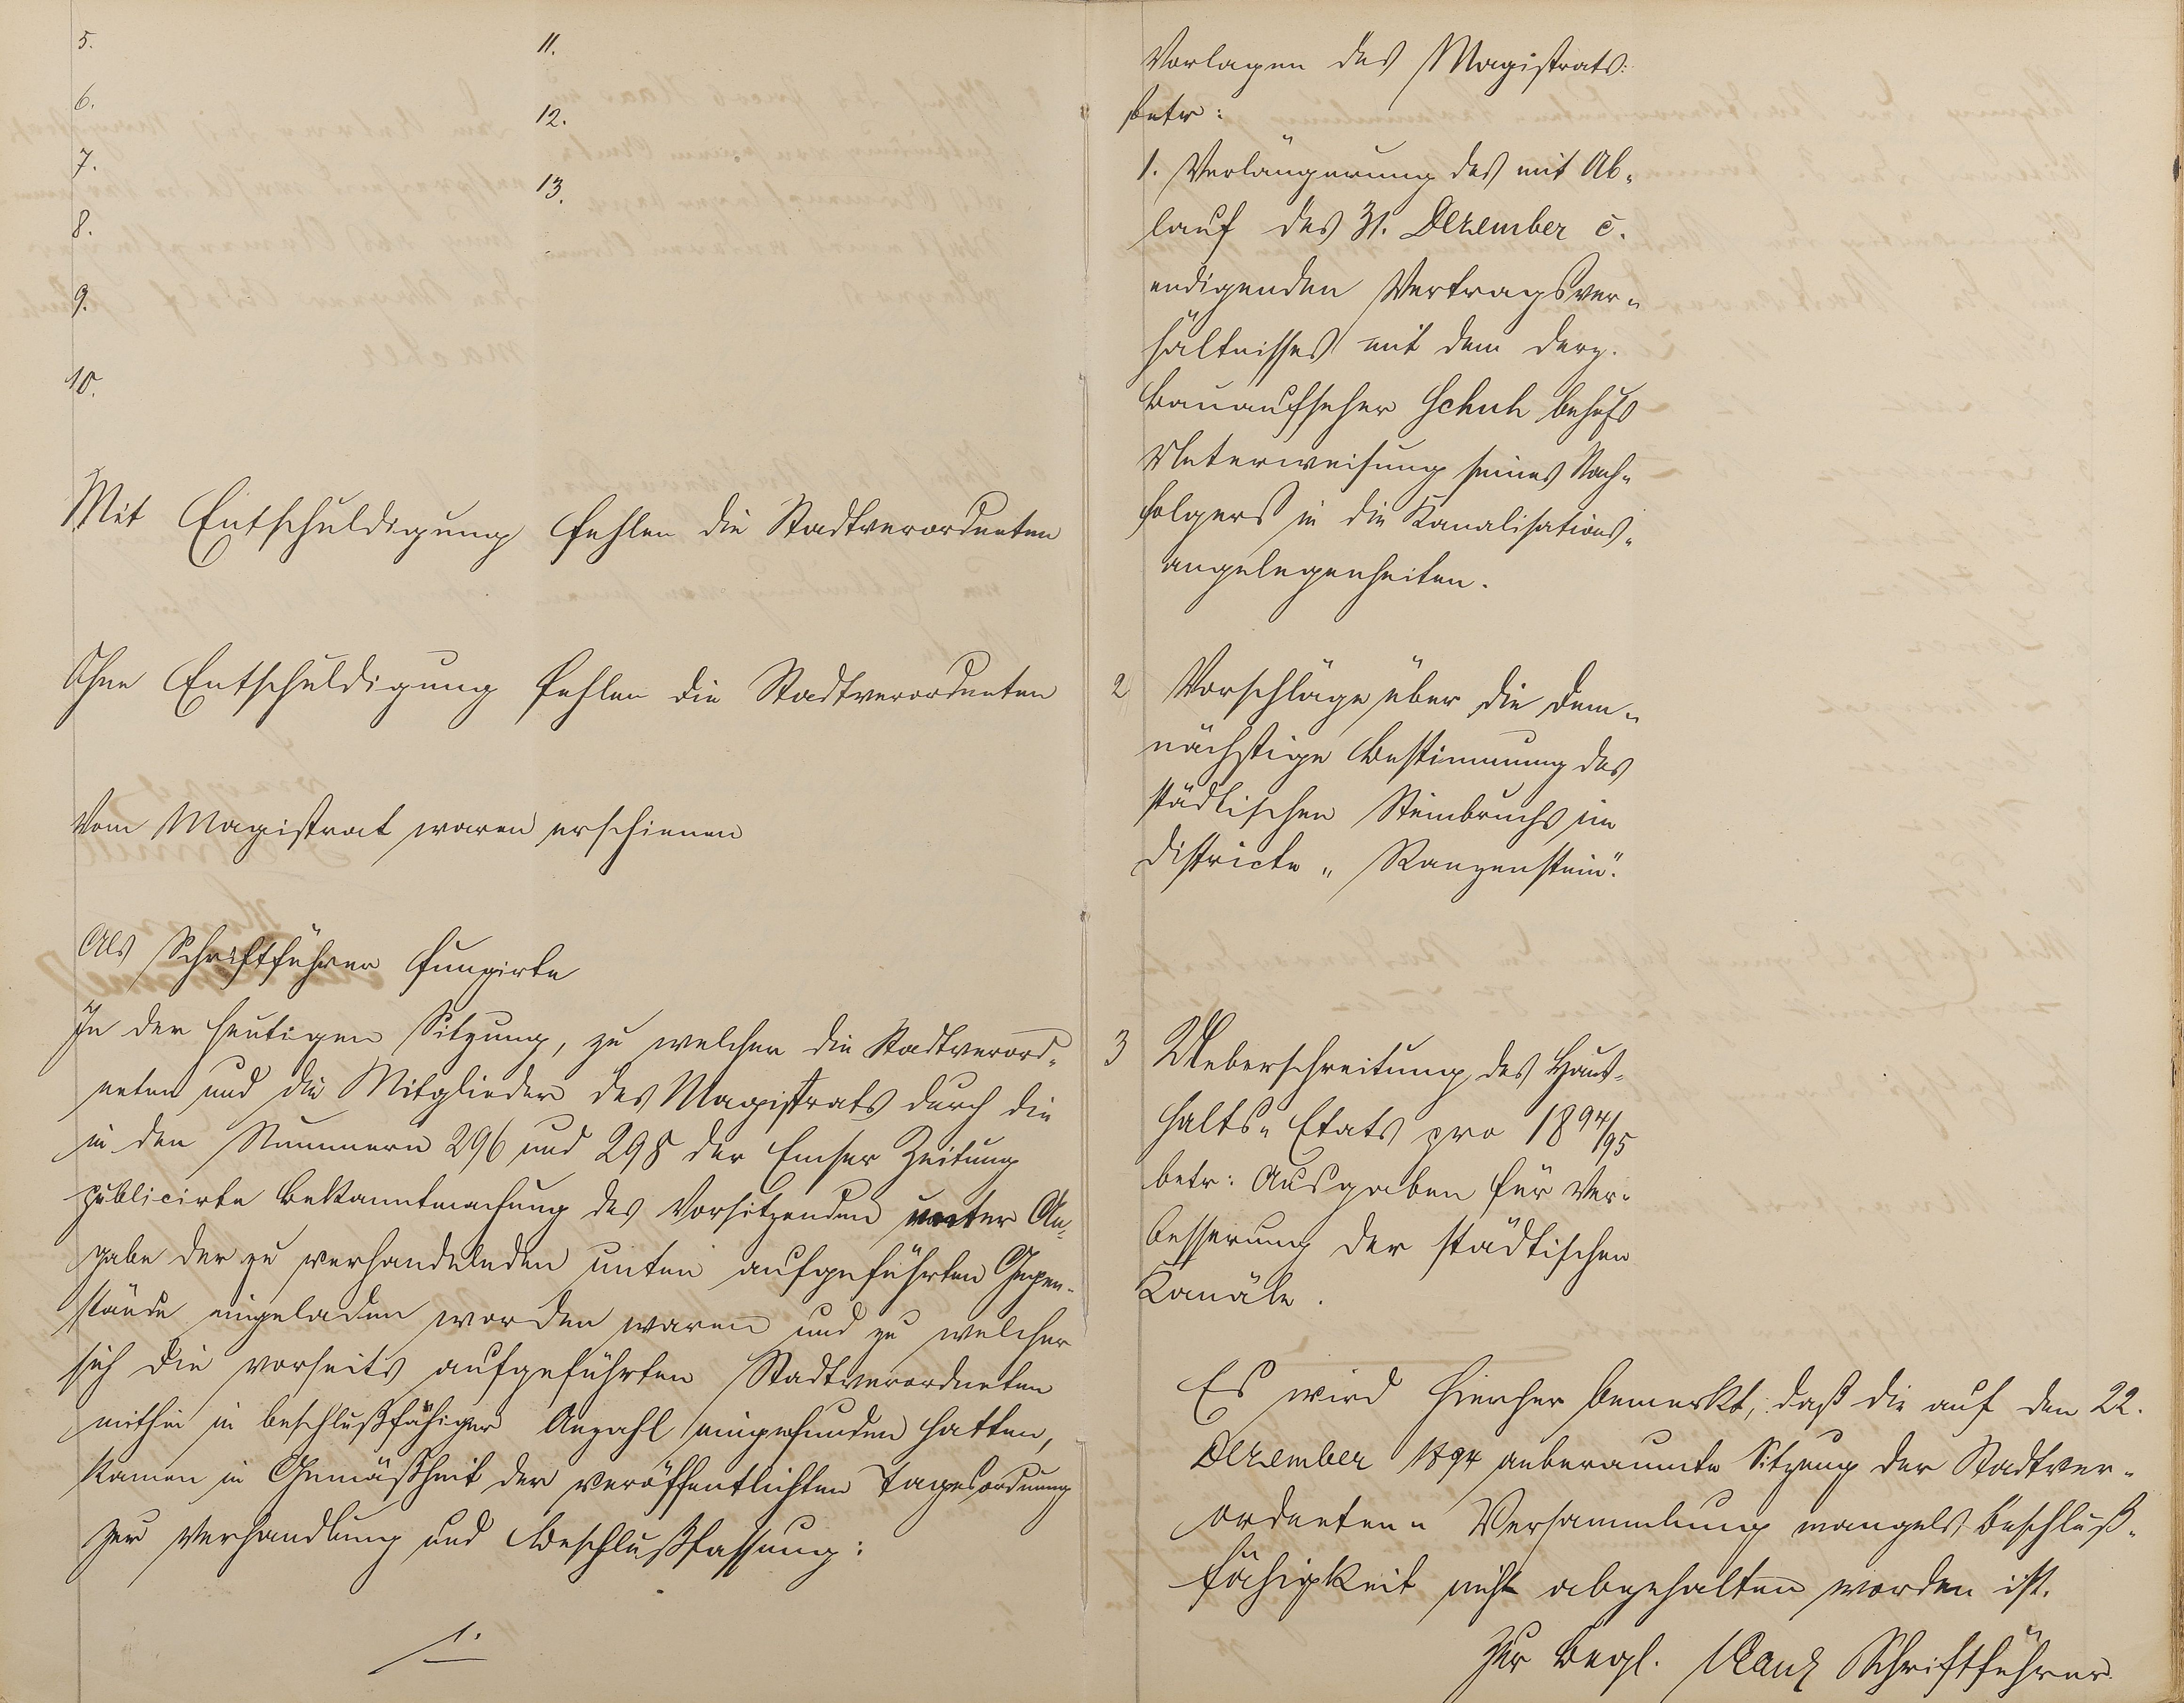 5.
6.
7.
8.
9.
10.
11.
12.
13.
Mit Entschuldigung fehlen die Stadtverordneten
Ohne Entschuldigung fehlen die Stadtverordneten
Vom Magistrat waren erschienen
Als Schriftführer fungirte
In der heutigen Sitzung, zu welcher die Stadtverord-
neten und die Mitglieder des Magistrats durch die
in den Nummern 296 und 298 der Emser Zeitung
publicirte Bekanntmachung des Vorsitzenden unter An-
gabe der zu verhandelnden unten aufgeführten Gegen-
stände eingeladen worden waren und zu welcher
sich die vorseits aufgeführten Stadtverordneten
mithin in beschlußfähiger Anzahl eingefunden hatten,
kamen in Gemäßheit der veröffentlichten Tagesordnung
zur Verhandlung und Beschlußfassung:
1.
Vorlagen des Magistrats:
betr:
1. Verlängerung des mit Ab-
lauf des 31. Dezember c.
endigenden Vertragsver-
hältnisses mit dem derz.
Bauaufseher Schuh behufs
Unterweisung seines Nach-
folgers in die Kanalisations-
angelegenheiten.
2 Vorschläge über die dem-
nächstige Bestimmung des
städtischen Steinbruchs im
Districte „Ranzenstein".
3 Ueberschreitung des Haus-
halts-Etats pro 1894/95
betr: Ausgaben für Ver-
besserung der städtischen
Kanäle.
Es wird hierher bemerkt, daß die auf den 22.
Dezember 1894 anberaumte Sitzung der Stadtver-
ordneten-Versammlung mangels Beschluß-
fähigkeit nicht abgehalten worden ist.
Zur Begl. Schriftführer.